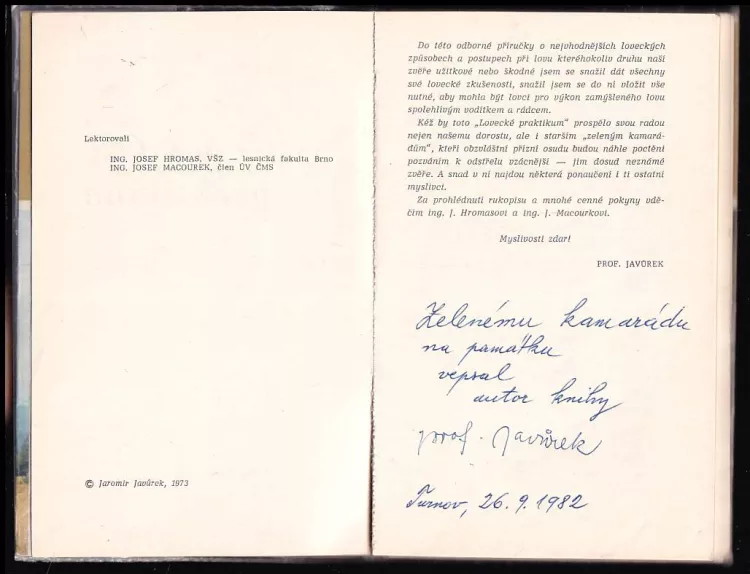 Lektorovali
ING. JOSEF HROMAS, VŠZ — lesnická fakulta Brno
ING. JOSEF MACOUREK, člen ÚV ČMS
© Jaromír Javůrek, 1973
Do této odborné příručky o nejvhodnějších loveckých
způsobech a postupech při lovu kteréhokoliv druhu naší
zvěře užitkové nebo škodné jsem se snažil dát všechny
své lovecké zkušenosti, snažil jsem se do ní vložit vše
nutné, aby mohla být lovci pro výkon zamýšleného lovu
spolehlivým vodítkem a rádcem.
Kéž by toto „Lovecké praktikum" prospělo svou radou
nejen našemu dorostu, ale i starším „zeleným kamará-
dům", kteří obzvláštní přízní osudu budou náhle poctěni
pozváním k odstřelu vzácnější — jim dosud neznámé
zvěře. A snad v ní najdou některá ponaučení i ti ostatní
myslivci.
Za prohlédnutí rukopisu a mnohé cenné pokyny vdě-
čím ing. J. Hromasovi a ing. J. Macourkovi.
Myslivosti zdar!
PROF. JAVŮREK
Zelenému kamarádu
na památku
vepsal
autor knihy
prof. Javůrek
Turnov, 26. 9. 1982